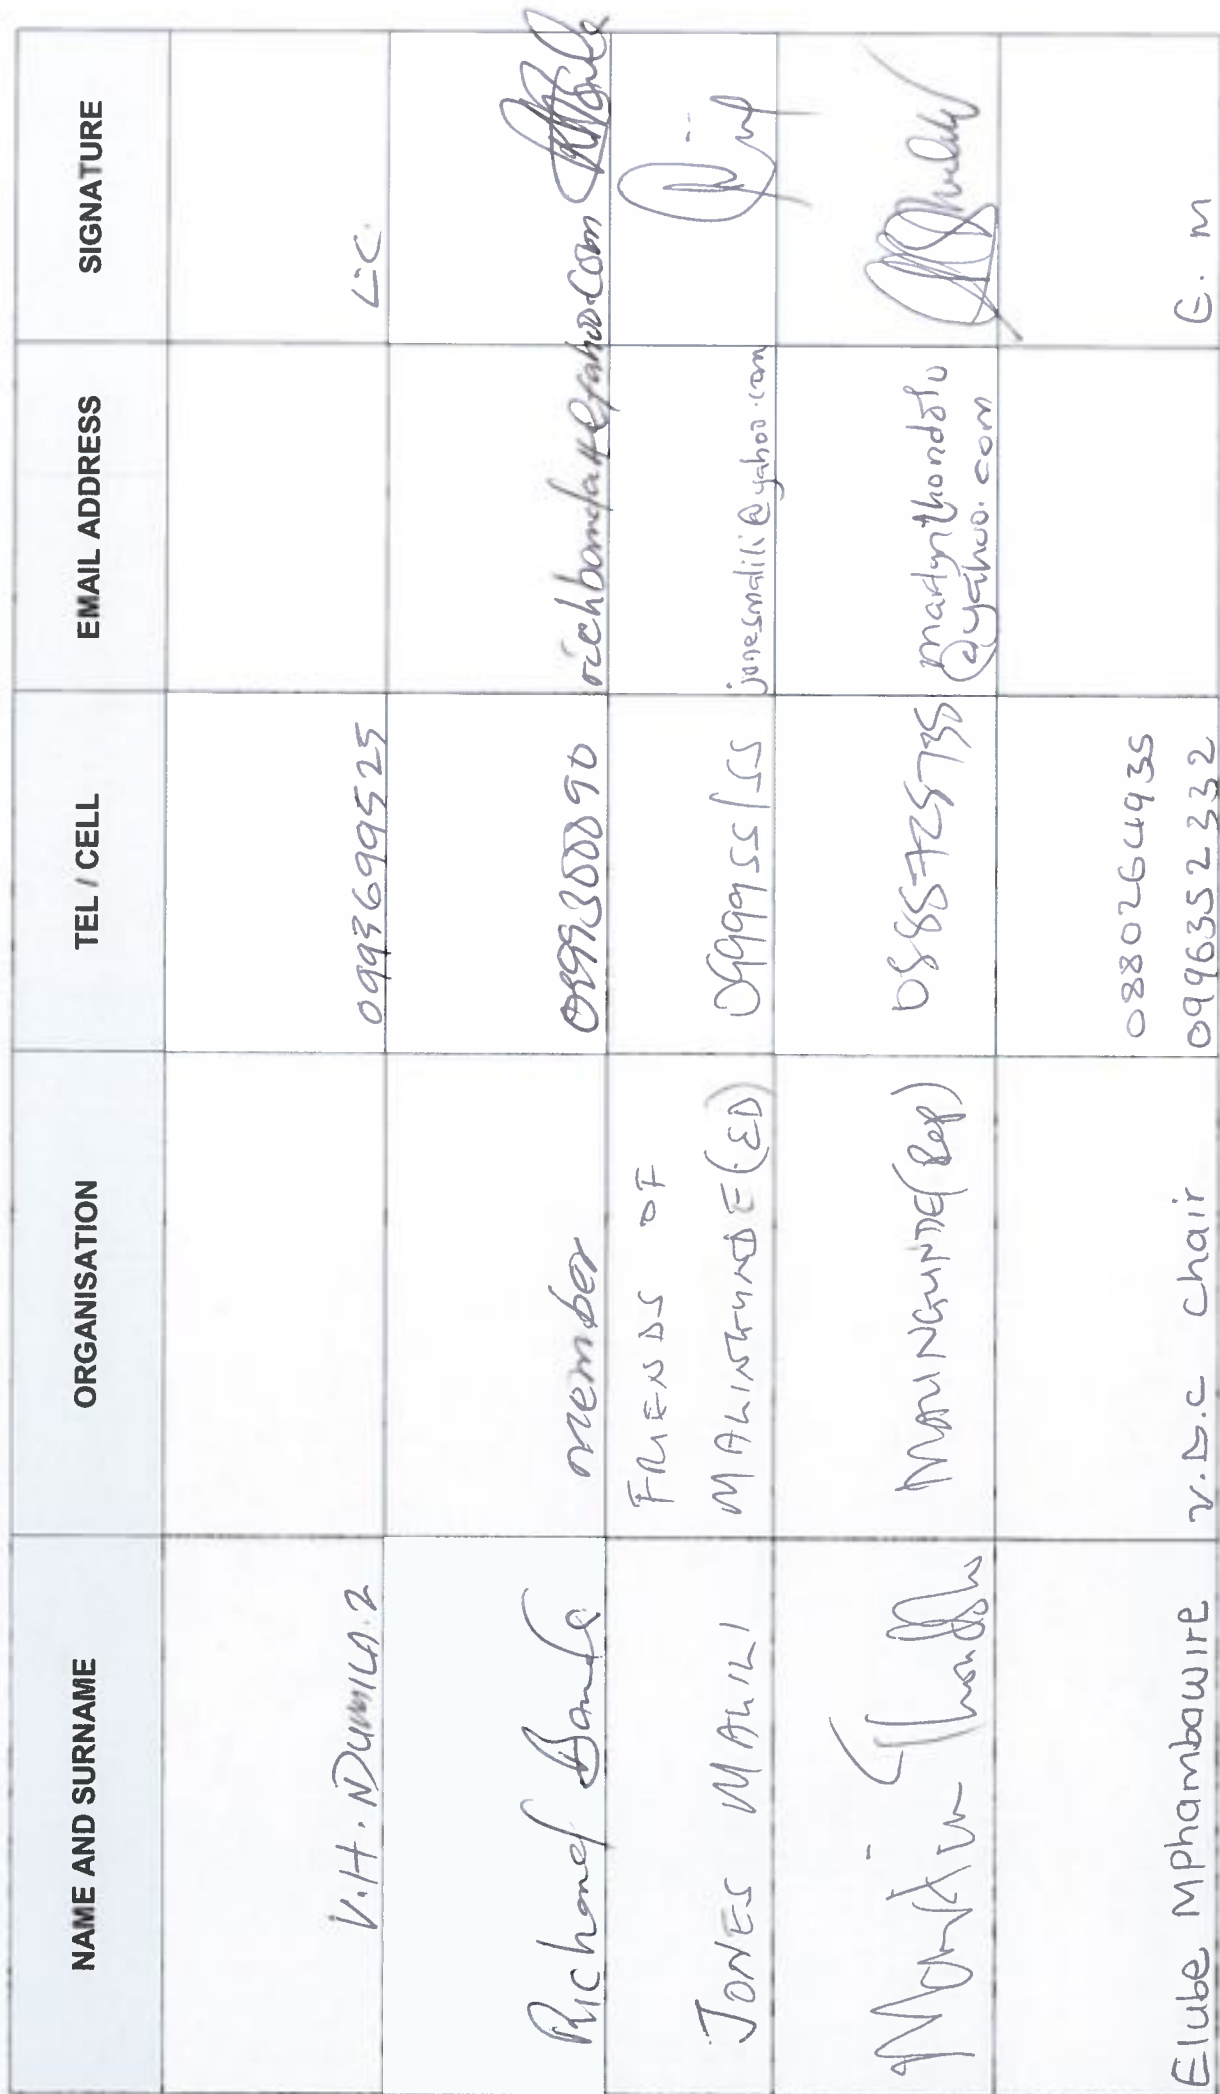 NAME AND SURNAME ORGANISATION TEL / CELL EMAIL ADDRESS SIGNATURE
V.H. NDUMILA.2 0993699525 L-C.
Richard Banda member richbanda4@yahoo.com
JONES MALILI FRIENDS OF
MALINGUNDE (ED) 0999955155 jonesmalili@yahoo.com
Martin Thondolo MALINGUNDE (Rep) 0888725735 martynthondolo
@yahoo.com
0880264935
Elube Mphambawire V.D.C chair 0996352332 E. M